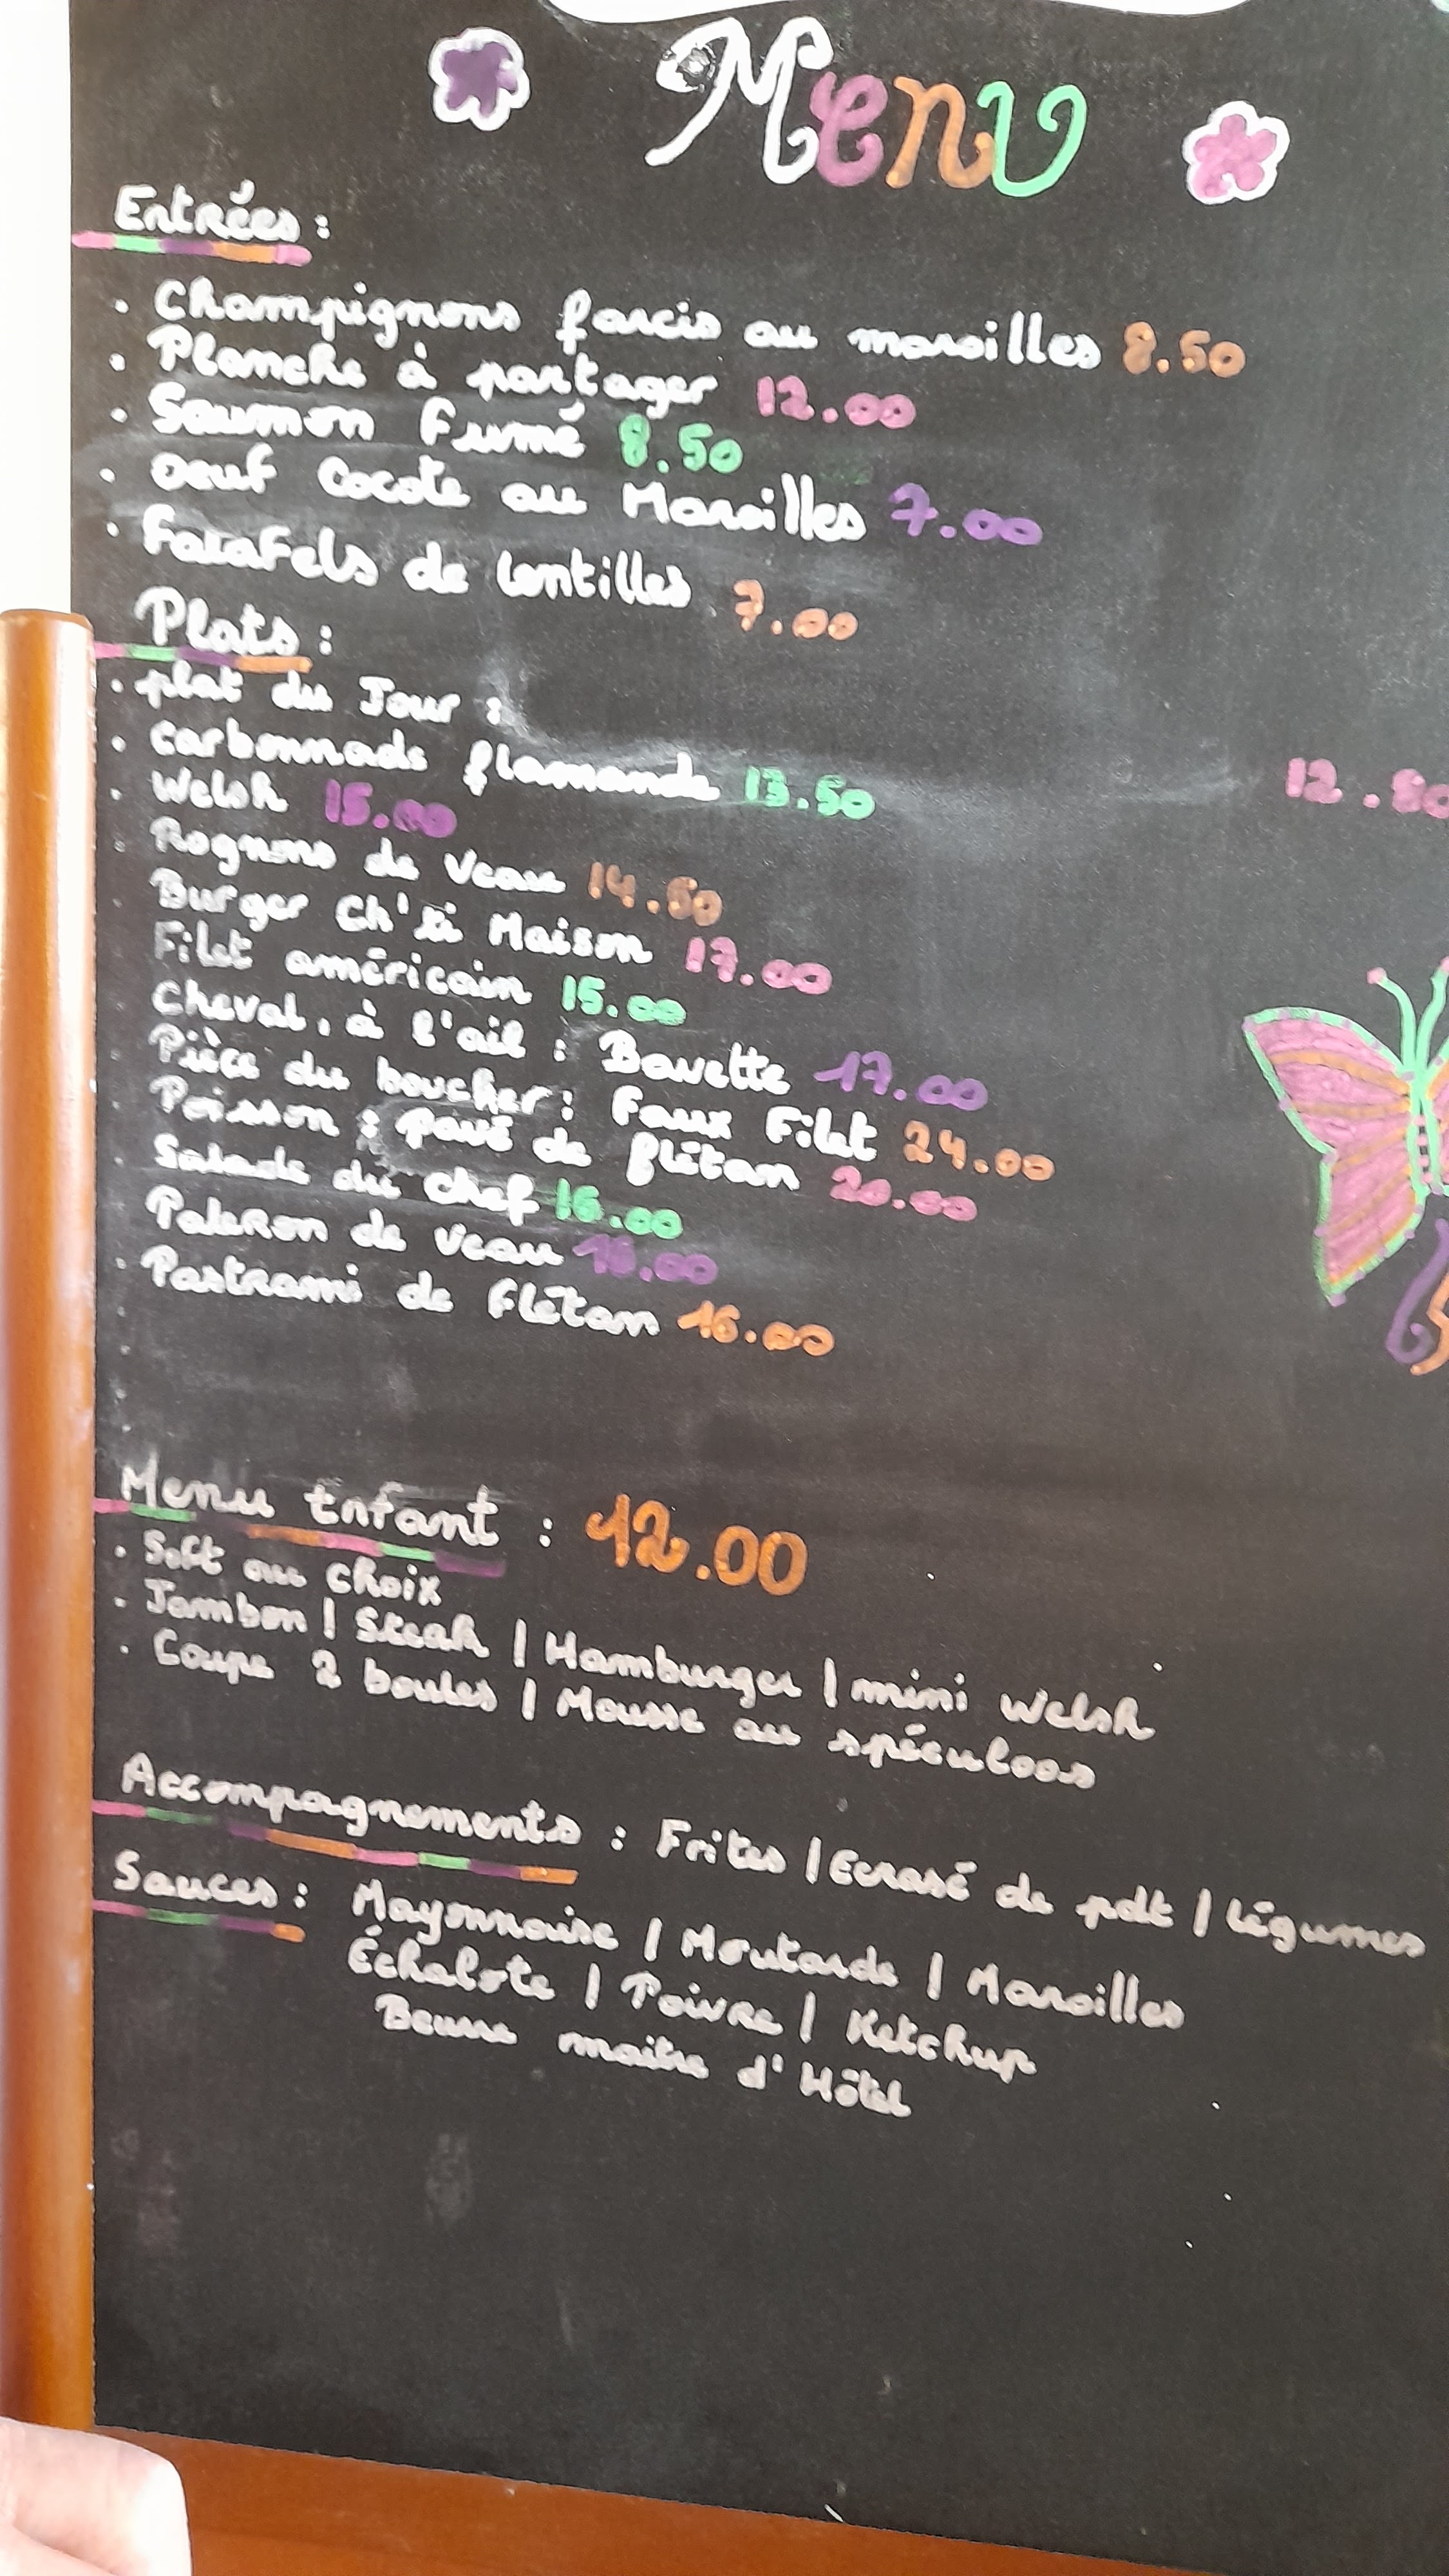 Menu
Entrées :
. Champignons farcis au maroilles 8.50
. Planche à partager 12.00
. Saumon fumé 8.50
. Oeuf Cocote au Maroilles 7.00
. Falafels de lentilles 7.00
Plats :
. plat du Jour : 12.80
. carbonnade flamande 13.50
. Welsh 15.00
. Rognons de Veau 14.50
. Burger Ch'ti Maison 17.00
. Filet américain 15.00
. Cheval, à l'ail : Bavette 17.00
. Pièce du boucher : Faux Filet 24.00
. Poisson : pavé de flétan 20.00
. Salade du chef 16.00
. Paleron de veau
. Pastrami de flétan 16.00
Menu Enfant : 12.00
. Soft au choix
. Jambon | Steak | Hamburger | mini Welsh
. Coupe 2 boules | Mousse au spéculoos
Accompagnements : Frites | Ecrasé de pdt | légumes
Sauces : Mayonnaise | Moutarde | Maroilles
Échalote | Poivre | Ketchup
Beurre maitre d'Hôtel